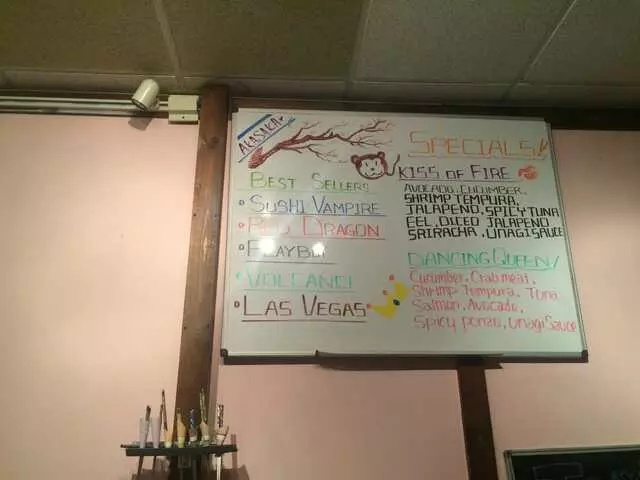 AKASAKA
BEST SELLERS
SUSHI VAMPIRE
RED DRAGON
PLAYBOY
VOLCANO
LAS VEGAS
SPECIALS!
KISS OF FIRE
AVOCADO, CUCUMBER,
SHRIMP TEMPURA,
JALAPENO, SPICY TUNA
EEL, DICED JALAPENO
SRIRACHA, UNAGI SAUCE
DANCING QUEEN!
Cucumber, Crabmeat,
Shrimp Tempura, Tuna
Salmon, Avocado,
Spicy ponzu, Unagi Sauce